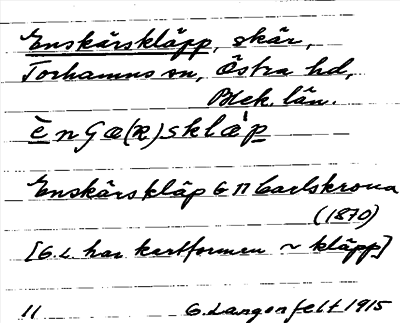 Enskärskläpp, skär,
Torhamns sn, Östra hd,
Blek. län.
è n ʃ æ (R) s k l æ̀ p
Enskärskläp G II Carlskrona
(1870)
[G.L. har kartformen ~ kläpp]
11 G. Langenfelt 1915